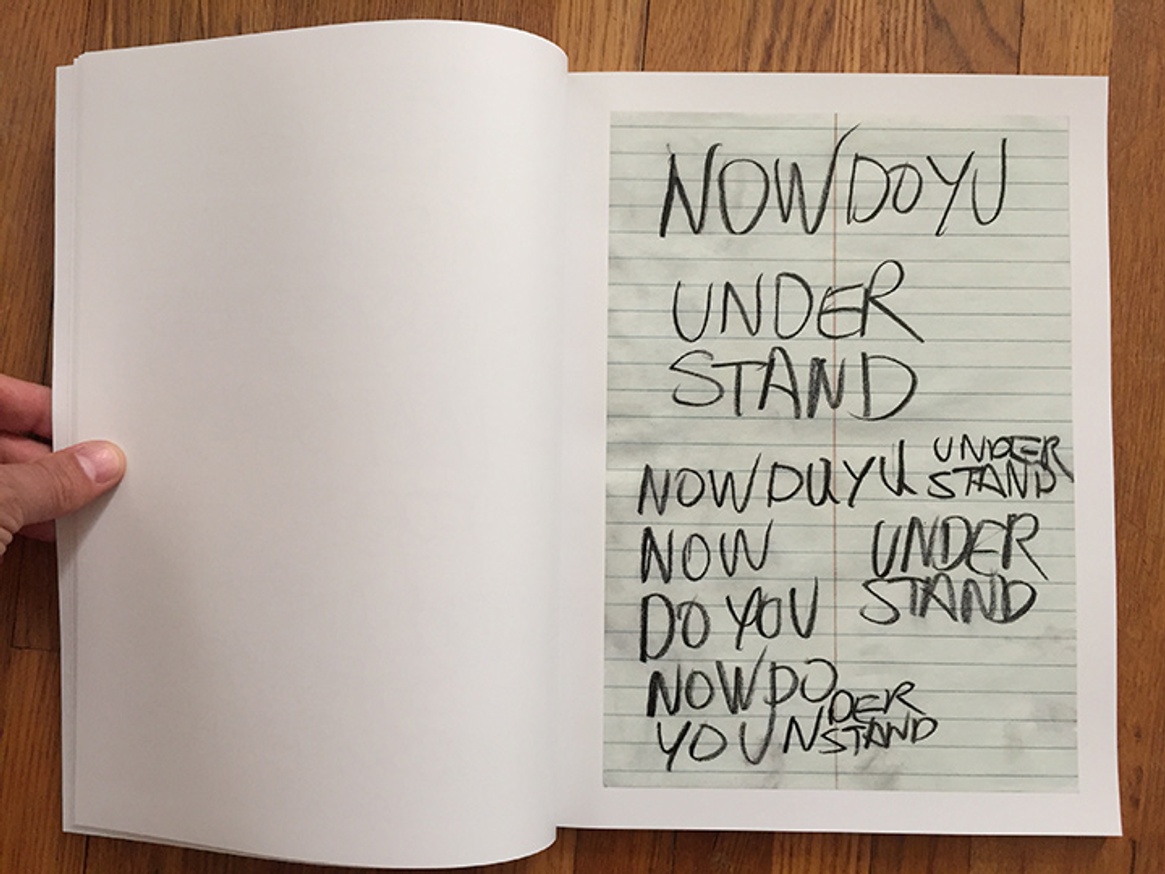 NOWDOYU
UNDER
STAND
NOWDUYU UNDER
STAND
NOW UNDER
DO YOU STAND
NOWDO
DER
YOUN STAND